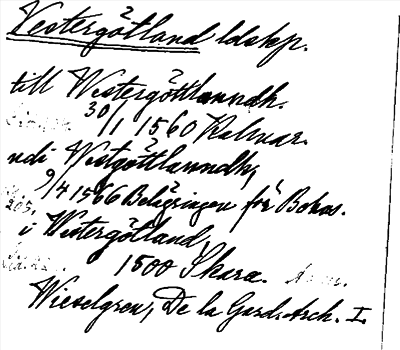 Vestergötland ldskp.
till Westergöttlanndh.
30/1 1560 Kalmar.
udi Westgöttlanndh,
9/4 1566 Belägringen för Bohus.
205.
i Westergötland,
1500 Skara.
Wieselgren, De la Gard. Arch. I.